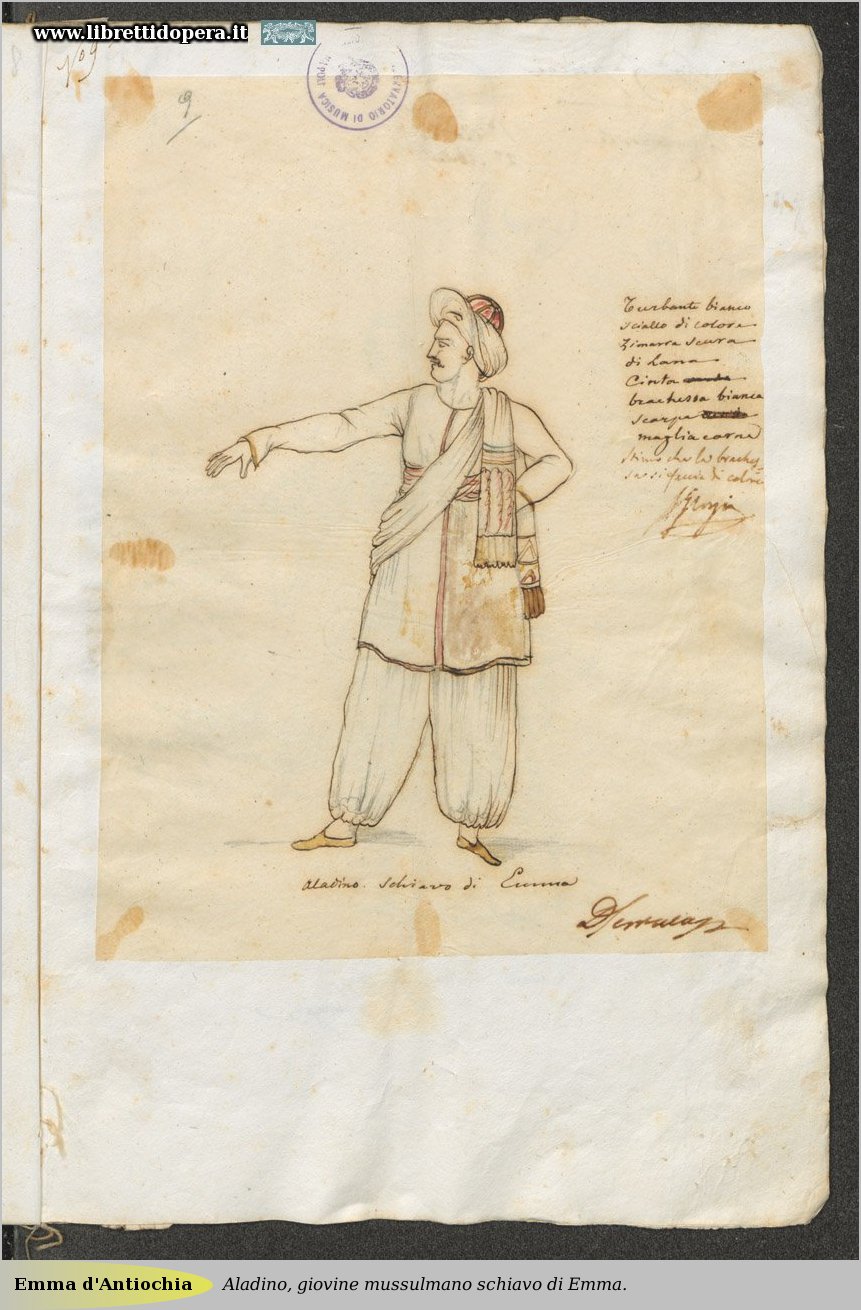 www.librettidopera.it
9
VATORIO DI MUSICA
Turbante bianco
sciallo di colore
Zimarra scura
di Lana
Cinta
brachessa bianca
scarpa
maglia carne
stimo che la braches
sa si faccia di colore
Aladino. schiavo di Emma
Emma d'Antiochia Aladino, giovine mussulmano schiavo di Emma.